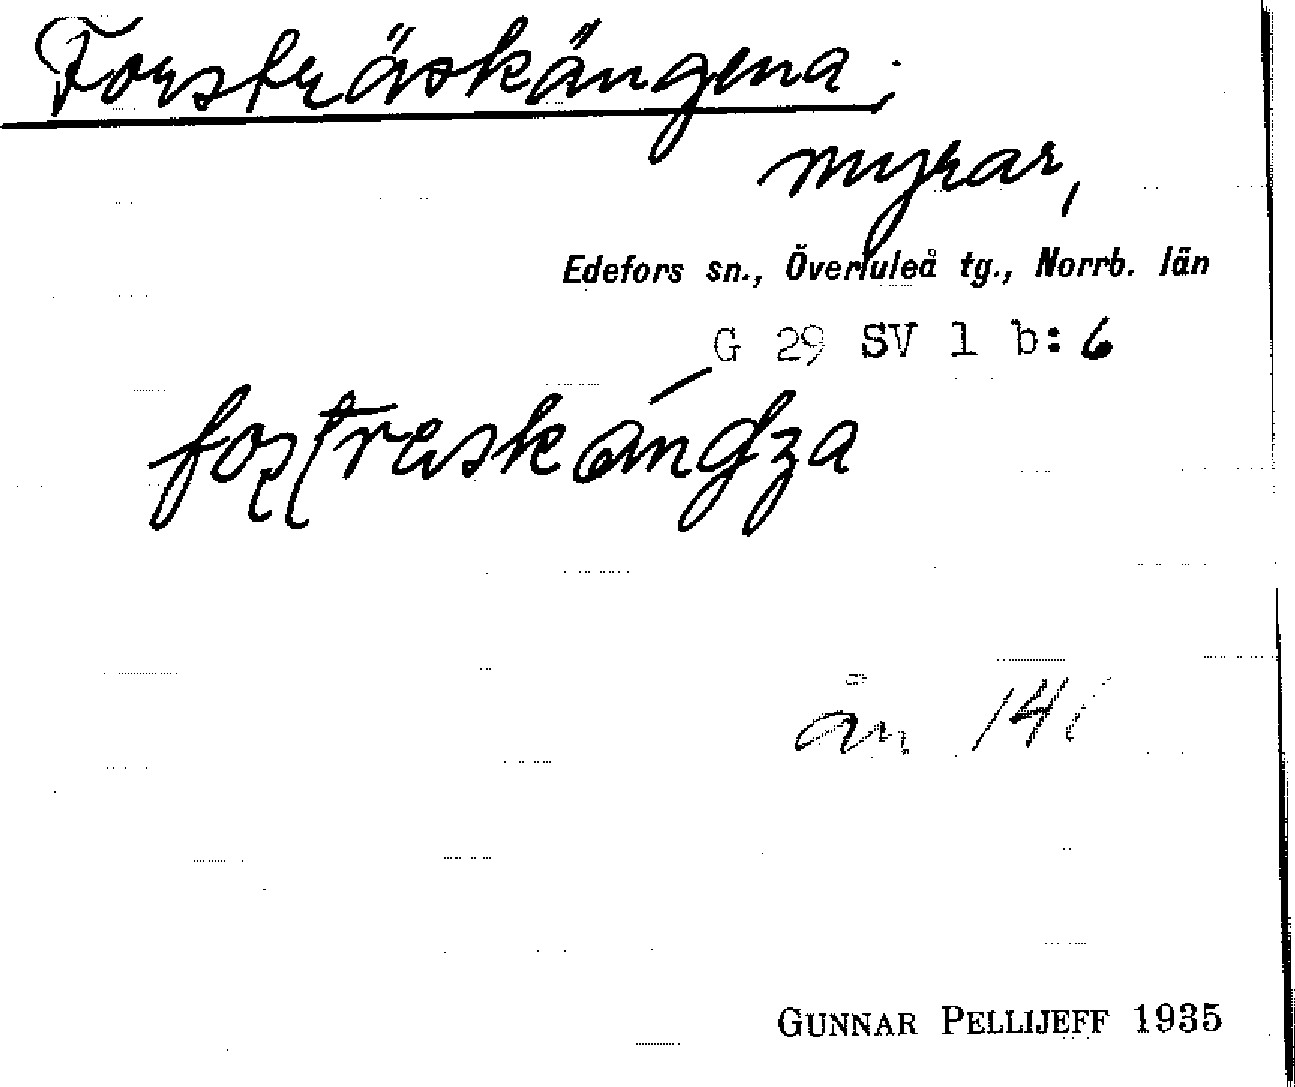 Forsträskängena,
myrar,
Edefors sn., Överluleå tg., Norrb. län
G 29 SV 1 b: 6
än 141
GUNNAR PELLIJEFF 1935